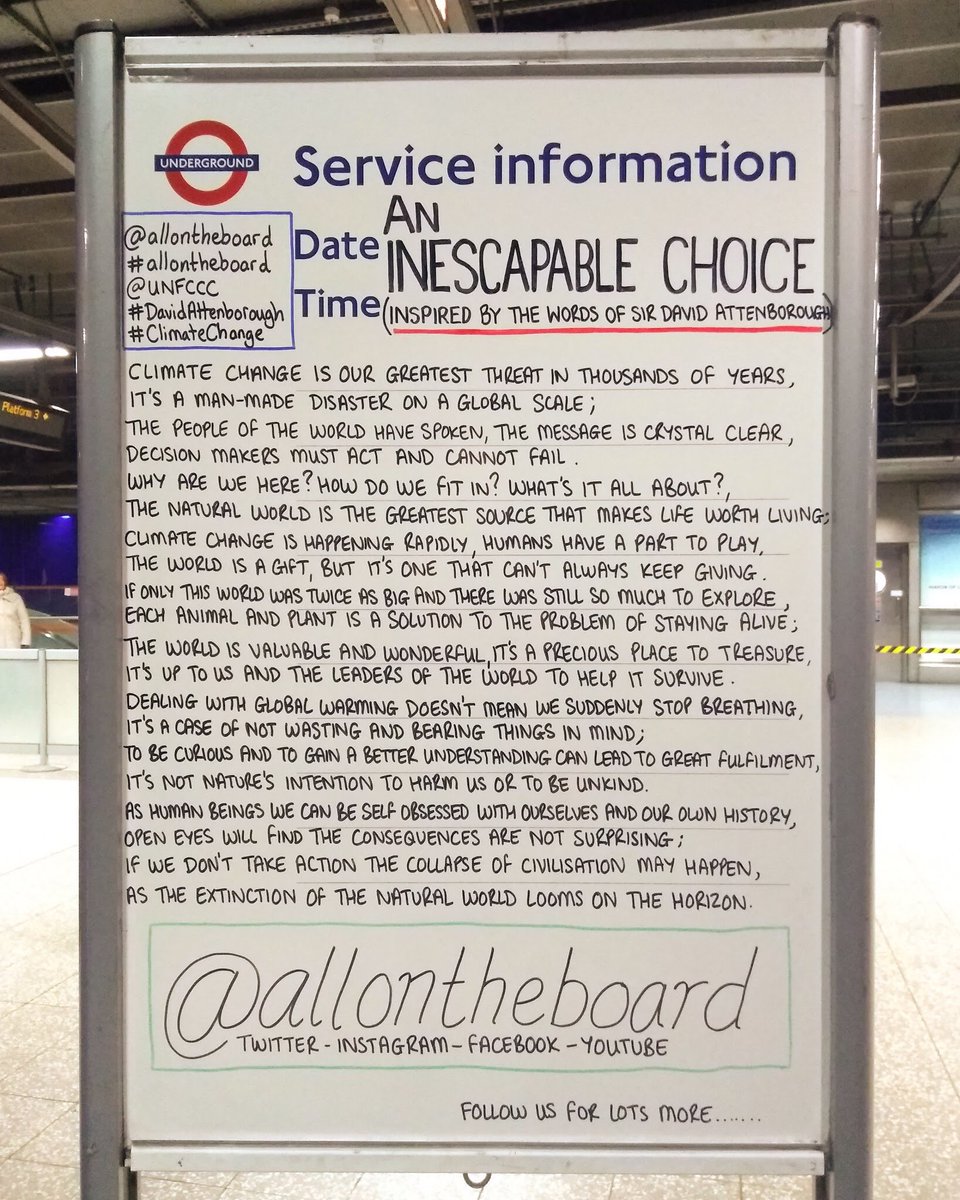 UNDERGROUND
Service information
@allontheboard
#allontheboard
@UNFCCC
#DavidAttenborough
#ClimateChange
Date
Time
AN
INESCAPABLE CHOICE
(INSPIRED BY THE WORDS OF SIR DAVID ATTENBOROUGH)
CLIMATE CHANGE IS OUR GREATEST THREAT IN THOUSANDS OF YEARS,
IT'S A MAN-MADE DISASTER ON A GLOBAL SCALE;
THE PEOPLE OF THE WORLD HAVE SPOKEN, THE MESSAGE IS CRYSTAL CLEAR,
DECISION MAKERS MUST ACT AND CANNOT FAIL.
WHY ARE WE HERE? HOW DO WE FIT IN? WHAT'S IT ALL ABOUT?,
THE NATURAL WORLD IS THE GREATEST SOURCE THAT MAKES LIFE WORTH LIVING;
CLIMATE CHANGE IS HAPPENING RAPIDLY, HUMANS HAVE A PART TO PLAY,
THE WORLD IS A GIFT, BUT IT'S ONE THAT CAN'T ALWAYS KEEP GIVING.
IF ONLY THIS WORLD WAS TWICE AS BIG AND THERE WAS STILL SO MUCH TO EXPLORE,
EACH ANIMAL AND PLANT IS A SOLUTION TO THE PROBLEM OF STAYING ALIVE;
THE WORLD IS VALUABLE AND WONDERFUL, IT'S A PRECIOUS PLACE TO TREASURE,
IT'S UP TO US AND THE LEADERS OF THE WORLD TO HELP IT SURVIVE.
DEALING WITH GLOBAL WARMING DOESN'T MEAN WE SUDDENLY STOP BREATHING,
IT'S A CASE OF NOT WASTING AND BEARING THINGS IN MIND;
TO BE CURIOUS AND TO GAIN A BETTER UNDERSTANDING CAN LEAD TO GREAT FULFILMENT,
IT'S NOT NATURE'S INTENTION TO HARM US OR TO BE UNKIND.
AS HUMAN BEINGS WE CAN BE SELF OBSESSED WITH OURSELVES AND OUR OWN HISTORY,
OPEN EYES WILL FIND THE CONSEQUENCES ARE NOT SURPRISING;
IF WE DON'T TAKE ACTION THE COLLAPSE OF CIVILISATION MAY HAPPEN,
AS THE EXTINCTION OF THE NATURAL WORLD LOOMS ON THE HORIZON.
@allontheboard
TWITTER - INSTAGRAM - FACEBOOK - YOUTUBE
FOLLOW US FOR LOTS MORE.......
Platform 3